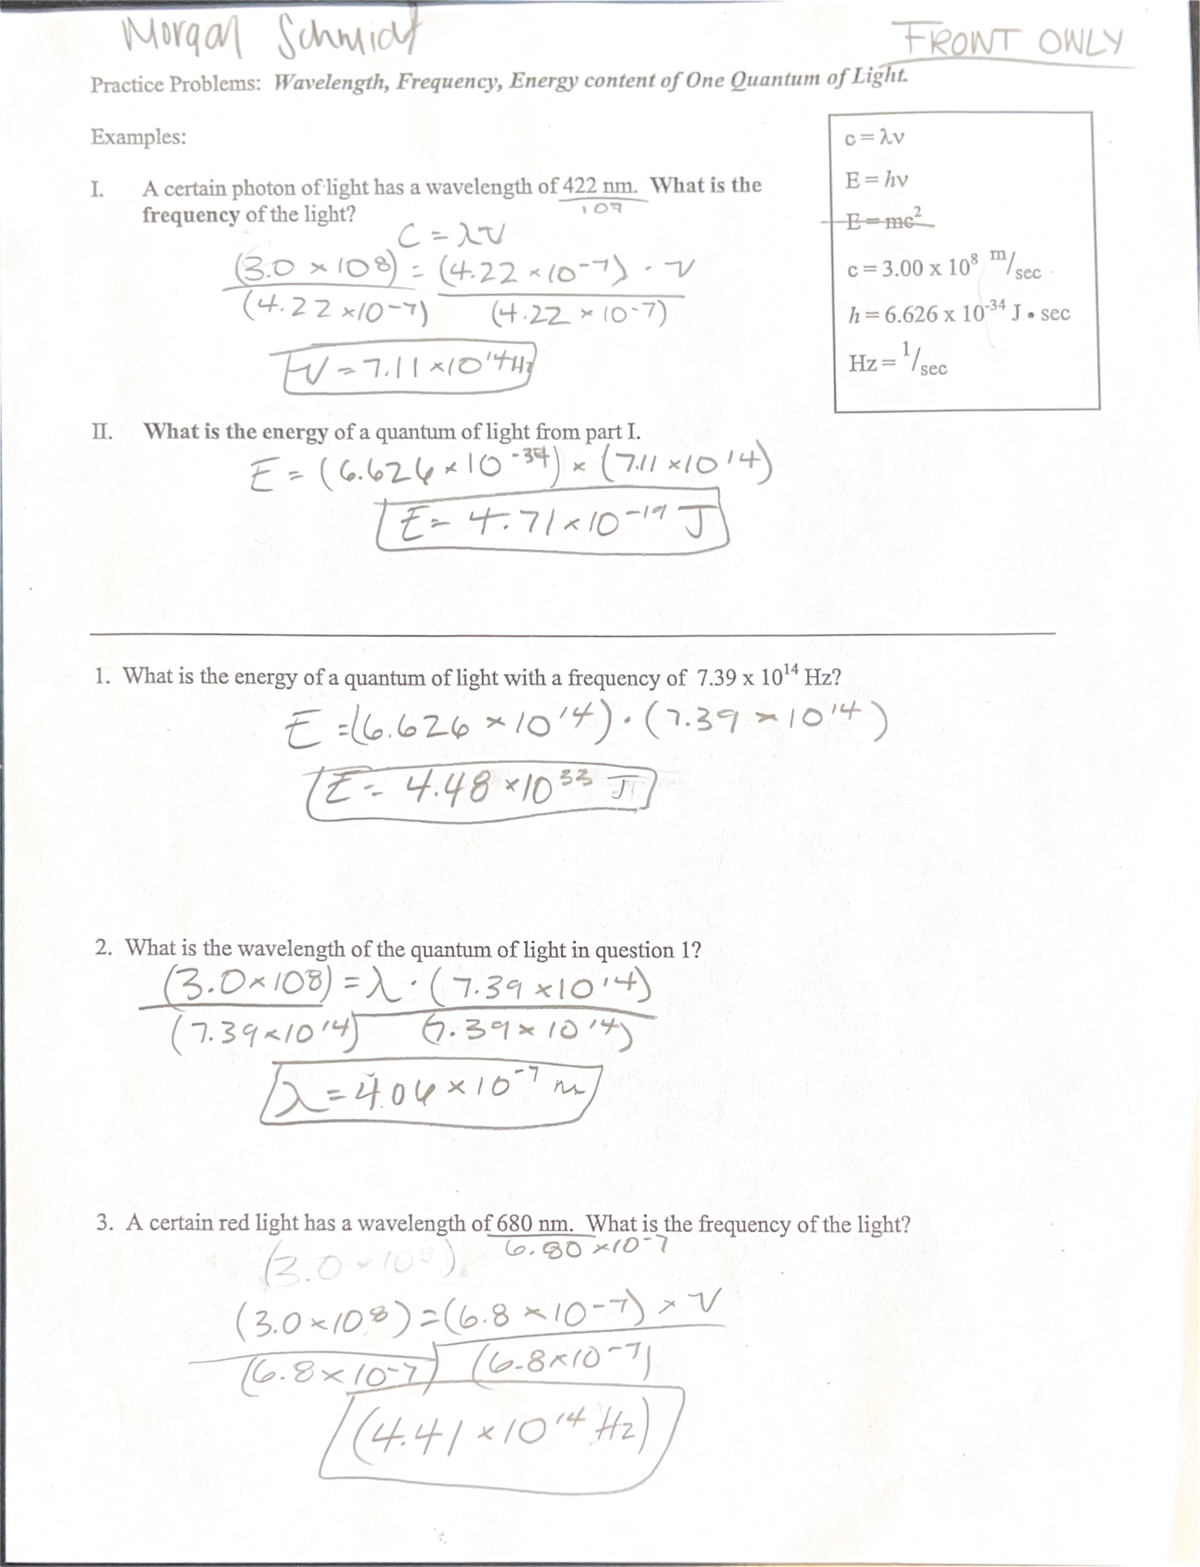 Morgan Schmidt
FRONT ONLY
Practice Problems: Wavelength, Frequency, Energy content of One Quantum of Light.
Examples:
c = λν
E = hν
E = mc²
c = 3.00 x 10⁸ m/sec
h = 6.626 x 10⁻³⁴ J • sec
Hz = 1/sec
I. A certain photon of light has a wavelength of 422 nm. What is the
frequency of the light?
109
C = λν
(3.0 × 108) = (4.22 × 10-7) · ν
(4.22 × 10-7) (4.22 × 10-7)
ν = 7.11 × 10¹⁴ Hz
II. What is the energy of a quantum of light from part I.
E = (6.626 × 10⁻³⁴) × (7.11 × 10¹⁴)
E = 4.71 × 10⁻¹⁹ J
1. What is the energy of a quantum of light with a frequency of 7.39 x 10¹⁴ Hz?
E = (6.626 × 10¹⁴) · (7.39 × 10¹⁴)
E = 4.48 × 10³³ J
2. What is the wavelength of the quantum of light in question 1?
(3.0 × 108) = λ · (7.39 × 10¹⁴)
(7.39 × 10¹⁴) (7.39 × 10¹⁴)
λ = 4.06 × 10⁻⁷ m
3. A certain red light has a wavelength of 680 nm. What is the frequency of the light?
6.80 × 10-7
(3.0 × 10⁸)
(3.0 × 10⁸) = (6.8 × 10-7) × ν
(6.8 × 10-7) (6.8 × 10-7)
(4.41 × 10¹⁴ Hz)